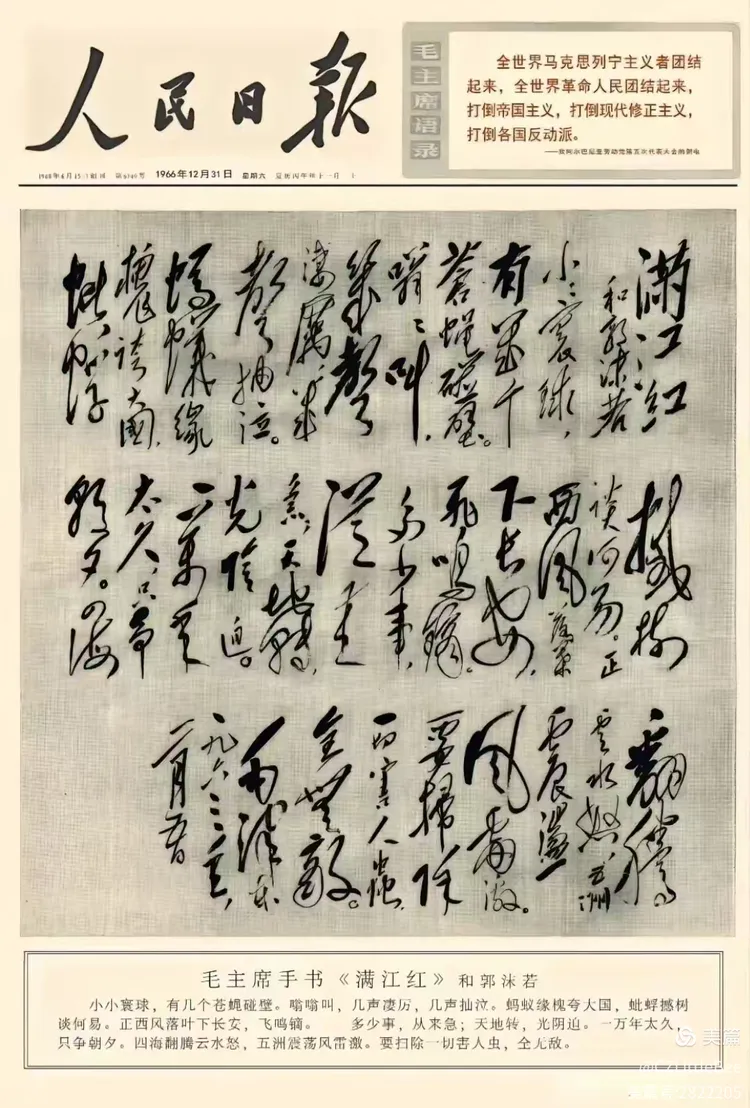 人民日报
毛主席语录
全世界马克思列宁主义者团结
起来,全世界革命人民团结起来,
打倒帝国主义,打倒现代修正主义,
打倒各国反动派。
——致阿尔巴尼亚劳动党第五次代表大会的贺电
1948年6月15日创刊 1966年12月31日 星期六 夏历丙午年十一月
满江红
和郭沫若
小小寰球,
有几个
苍蝇碰壁。
嗡嗡叫,
几声
凄厉,几
声抽泣。
蚂蚁缘
槐夸大国,
蚍蜉
撼树
谈何易。正
西风落叶
下长安,
飞鸣镝。
多少事,
从来
急;天地转,
光阴迫。
一万年
太久,只争
朝夕。四海
翻腾
云水怒,五洲
震荡
风雷激。
要扫除
一切害人虫,
全无敌。
毛泽东
一九六三年,
二月五日
毛主席手书《满江红》和郭沫若
小小寰球,有几个苍蝇碰壁。嗡嗡叫,几声凄厉,几声抽泣。蚂蚁缘槐夸大国,蚍蜉撼树
谈何易。正西风落叶下长安,飞鸣镝。 多少事,从来急;天地转,光阴迫。一万年太久,
只争朝夕。四海翻腾云水怒,五洲震荡风雷激。要扫除一切害人虫,全无敌。
美篇